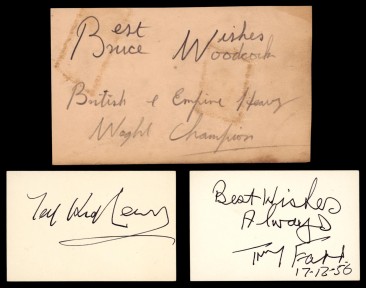 Best Wishes
Bruce Woodcock
British & Empire Heavy
Weght Champion
Ted Kid Lewis
Best Wishes
Always
Tommy Farr
17-12-56